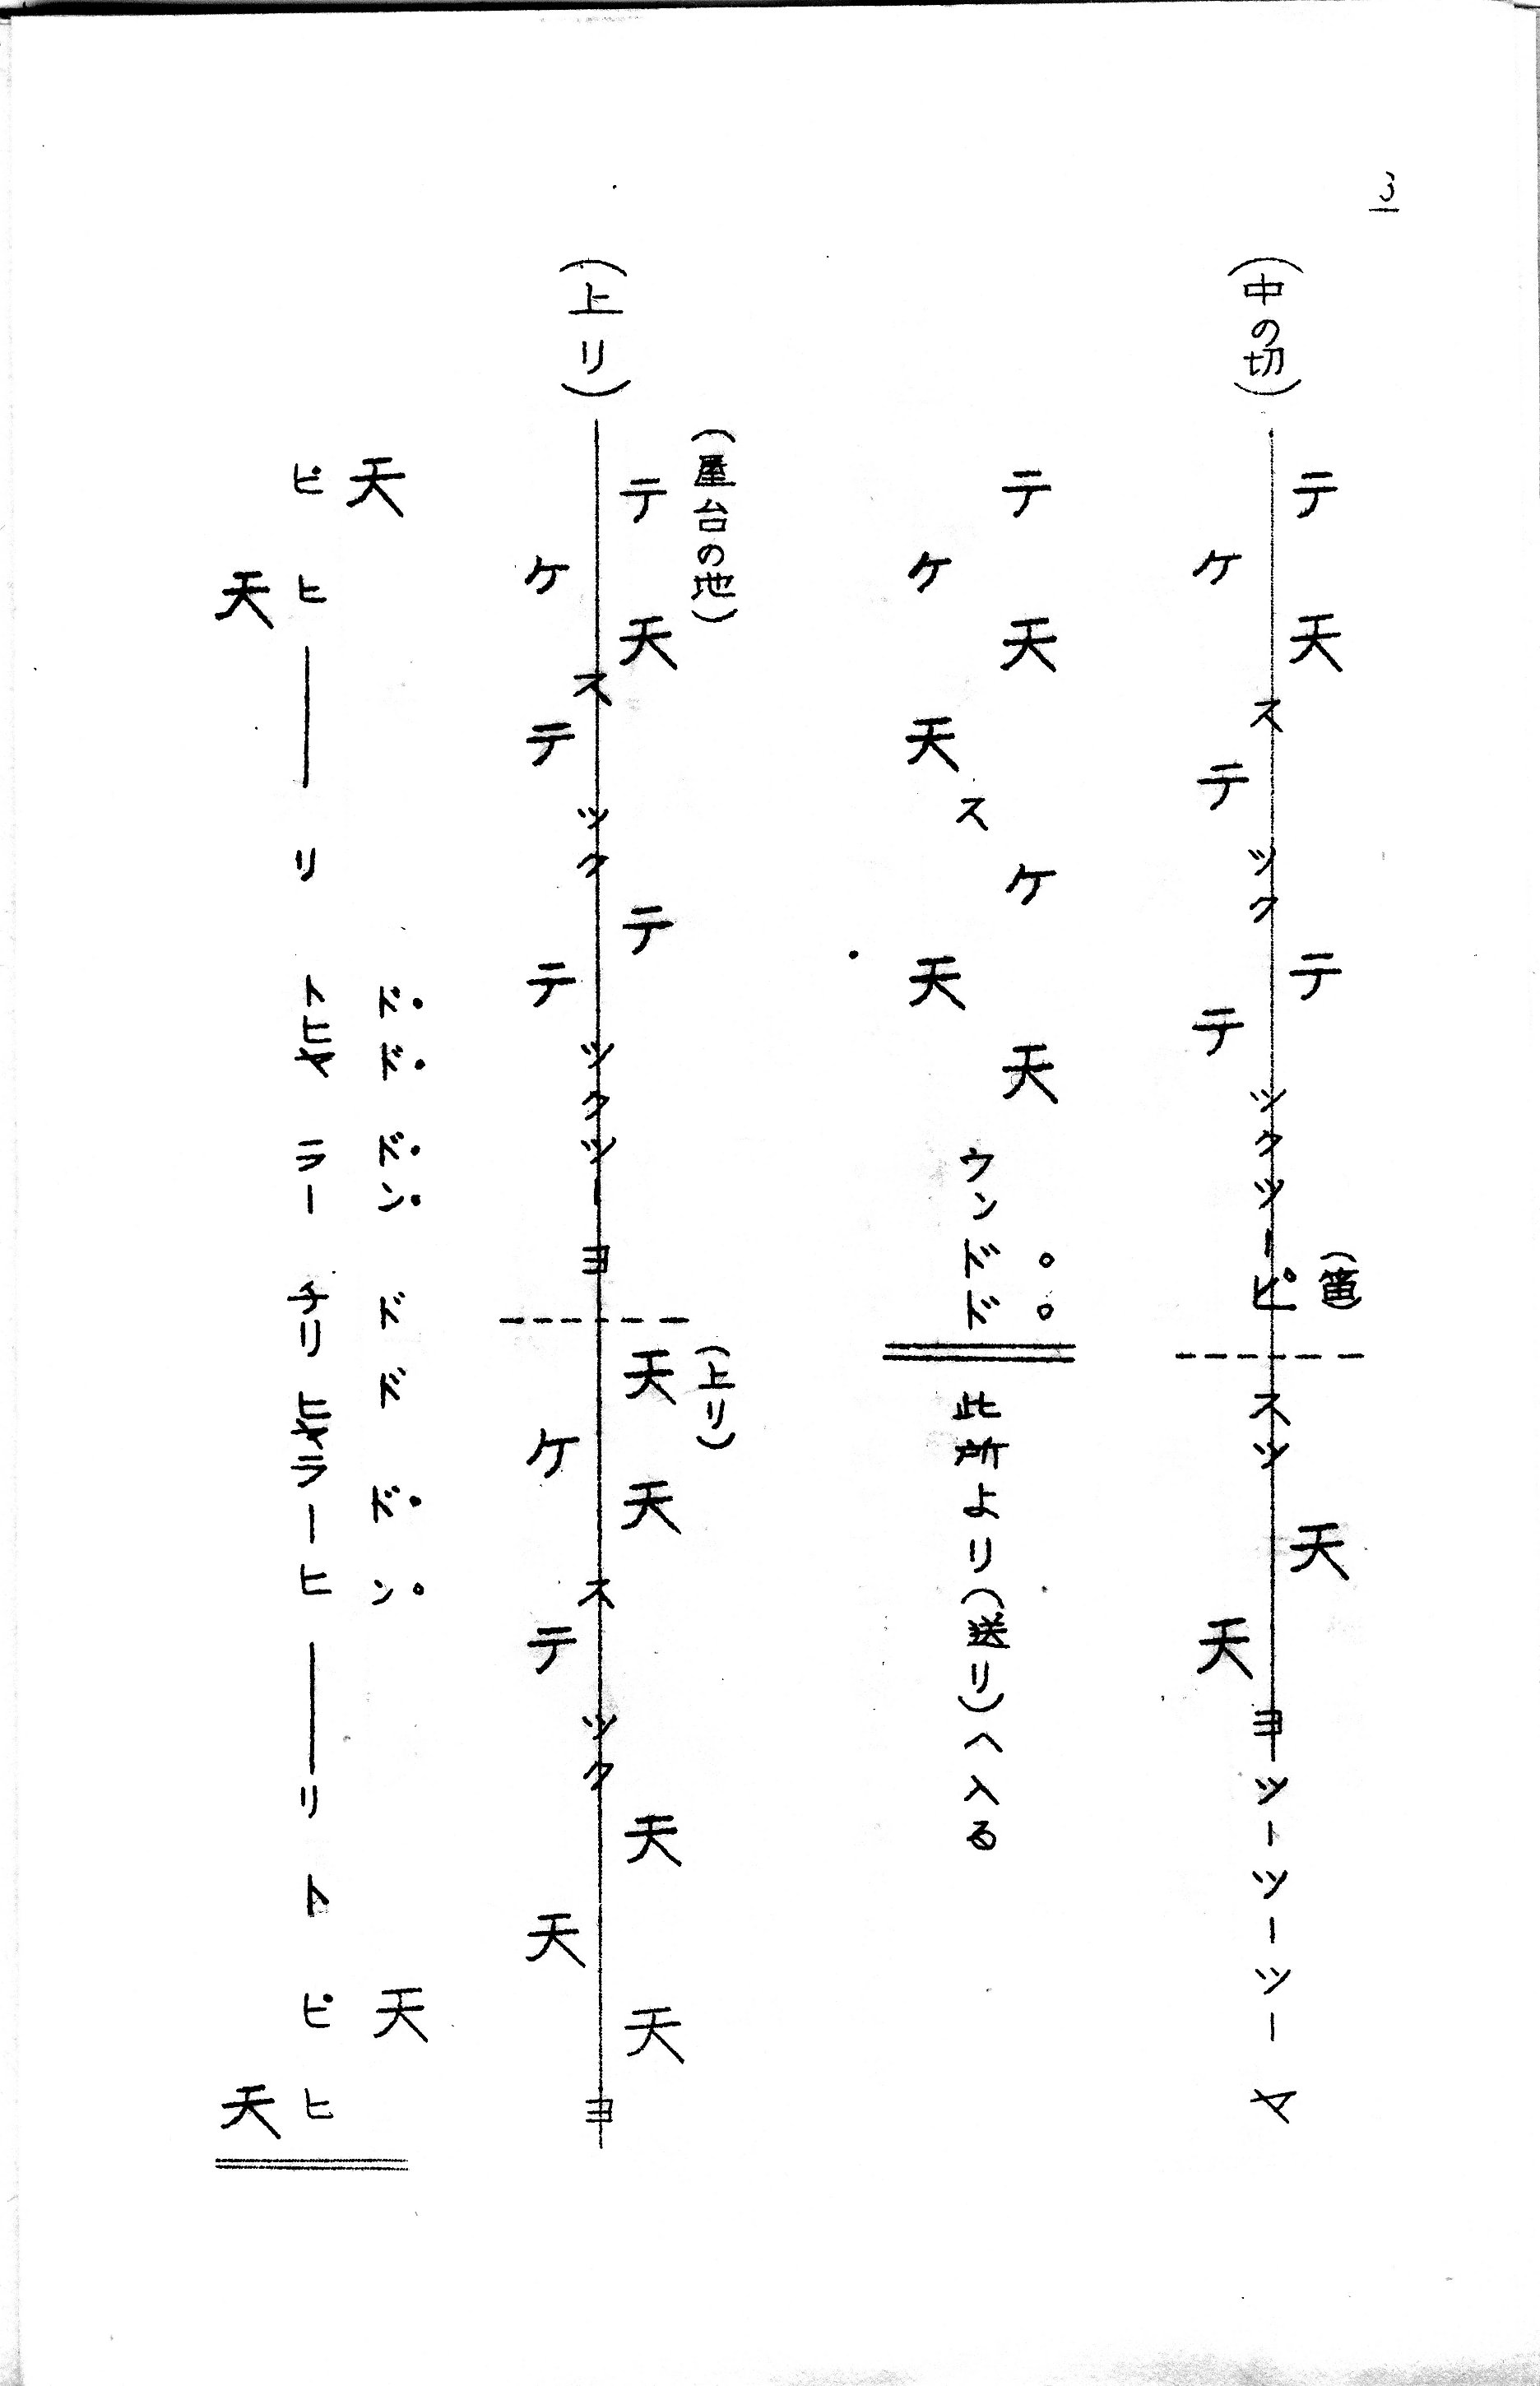 3
(中の切)
テケ天ステツクテテツクツーピ(笛)スツ天天ヨツーツーツーヤ
テケ天天スケ天天ウンドド此所より(送り)へ入る
(上り)
(屋台の地)
テケ天ステツクテテツクツーヨ
(上り)
天ケ天ステツク天天天ヨ
天天ドドドンドドドン天天
ピヒーリトヒャラーチリヒャラーヒーリトピヒ